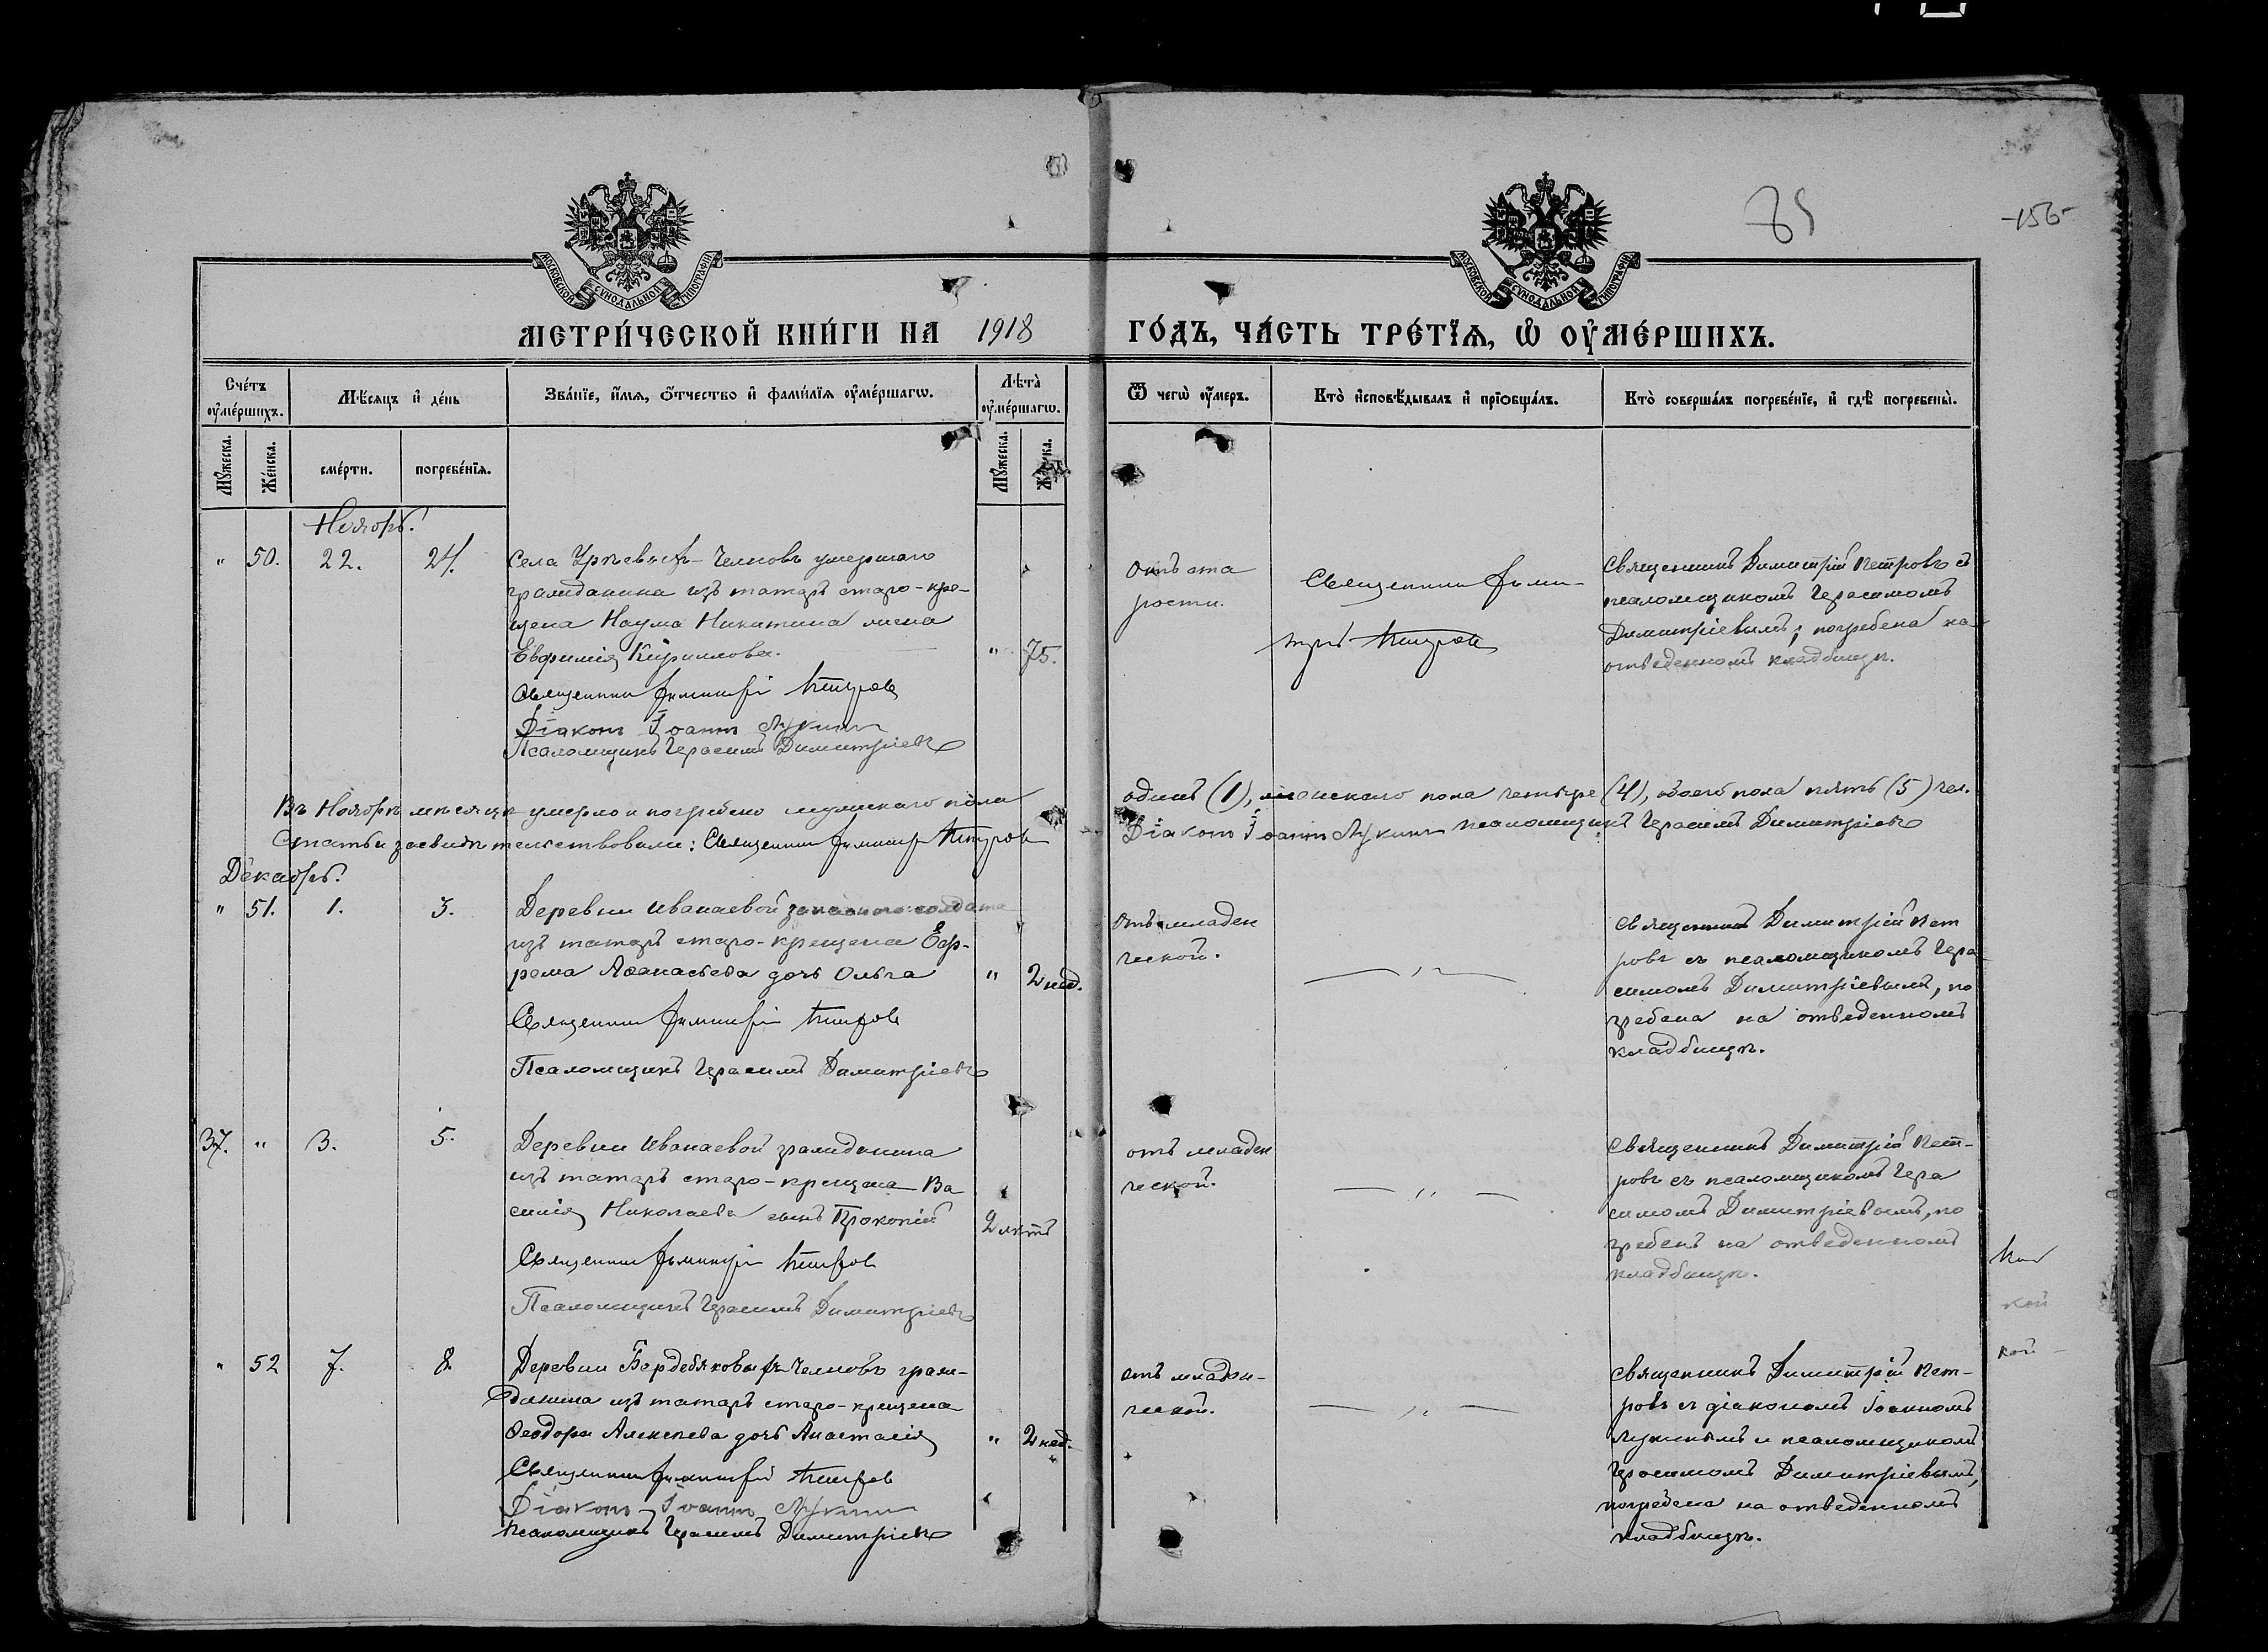 85
-156-
МОСКОВСКОЙ СѴНОДАЛЬНОЙ ТИПОГРАФІИ
МОСКОВСКОЙ СѴНОДАЛЬНОЙ ТИПОГРАФІИ
МЕТРИ́ЧЕСКОЙ КНИ́ГИ НА 1918 ГО́ДЪ, ЧА́СТЬ ТРЕ́ТЇѦ, Ѡ҆ ОУ҆МЕ́РШИХЪ.
Сче́тъ оу҆ме́ршихъ.
Мѣ́сяцъ и҆ де́нь
Зва́нїе, и҆́мѧ, о҆́тчество и҆ фами́лїѧ оу҆ме́ршагѡ.
Лѣта̀ оу҆ме́ршагѡ.
Ѿ чегѡ̀ оу҆́меръ.
Кто̀ и҆сповѣ́дывалъ и҆ прїѡбща́лъ.
Кто̀ соверша́лъ погребе́нїе, и҆ гдѣ̀ погребены̀.
Мꙋ́жеска.
Же́нска.
сме́рти.
погребе́нїѧ.
Мꙋ́жеска.
Же́нска.
Ноябрь.
" 50. 22. 24.
Села Урѣевыхъ-Челновъ умершаго
гражданина изъ татаръ старо-кре-
щена Наума Никитина жена
Евфимія Кириллова. " 75.
Священникъ Димитрій Петровъ
Діаконъ Іоаннъ Лукинъ
Псаломщикъ Герасимъ Димитріевъ
Отъ ста
рости.
Священникъ Дими-
трій Петровъ
Священникъ Димитрій Петровъ съ
псаломщикомъ Герасимомъ
Димитріевымъ; погребена на
отведенномъ кладбищѣ.
Въ Ноябрѣ мѣсяцѣ умерло и погребено мужскаго пола одинъ (1), женскаго пола четыре (4), обоего пола пять (5) чел.
Статьи засвидѣтельствовали: Священникъ Димитрій Петровъ Діаконъ Іоаннъ Лукинъ Псаломщикъ Герасимъ Димитріевъ
Декабрь.
" 51. 1. 3.
Деревни Иванаевой запаснаго солдата
изъ татаръ старо-крещена Еф-
рема Аѳанасьева дочь Ольга " 2 нед.
Священникъ Димитрій Петровъ
Псаломщикъ Герасимъ Димитріевъ
Отъ младен
ческой.
— " —
Священникъ Димитрій Пет
ровъ съ псаломщикомъ Гера
симомъ Димитріевымъ, по
гребена на отведенномъ
кладбищѣ.
37. " 3. 5.
Деревни Иванаевой гражданина
изъ татаръ старо-крещена Ва
силія Николаева сынъ Прокопій 2 лѣтъ
Священникъ Димитрій Петровъ
Псаломщикъ Герасимъ Димитріевъ
отъ младен
ческой.
— " —
Священникъ Димитрій Пет-
ровъ съ псаломщикомъ Гера
симомъ Димитріевымъ, по
гребенъ на отведенномъ
кладбищѣ.
кой
кой
" 52 7. 8.
Деревни Бердебяковыхъ Челновъ граж-
данина изъ татаръ старо-крещена
Ѳеодора Алексѣева дочь Анастасія " 2 нед.
Священникъ Димитрій Петровъ
Діаконъ Іоаннъ Лукинъ
Псаломщикъ Герасимъ Димитріевъ
отъ младен-
ческой.
— " —
Священникъ Димитрій Пет-
ровъ съ діакономъ Іоанномъ
Лукинымъ и псаломщикомъ
Герасимомъ Димитріевымъ,
погребена на отведенномъ
кладбищѣ.